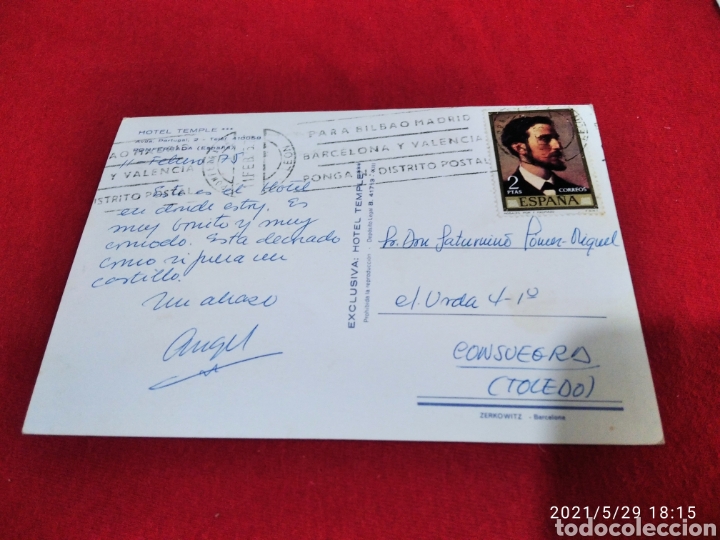 HOTEL TEMPLE ***
PONFERRADA (ESPAÑA)
11-Febrero 75
Este es el Hotel
en donde estoy. Es
muy bonito y muy
comodo. Esta decorado
como si fuera un
castillo.
Un abrazo
Angel
Y VALENCIA
DISTRITO POSTAL
LEON
PARA BILBAO MADRID
BARCELONA Y VALENCIA
PONGA EL DISTRITO POSTAL
EXCLUSIVA: HOTEL TEMPLE***
Prohibida la reproducción - Depósito Legal B. 41719-XIII
2
PTAS
CORREOS
ESPAÑA
Sr. Don Saturnino
cl. Urda 4-1º
CONSUEGRA
(TOLEDO)
ZERKOWITZ - Barcelona
2021/5/29 18:15
todocoleccion